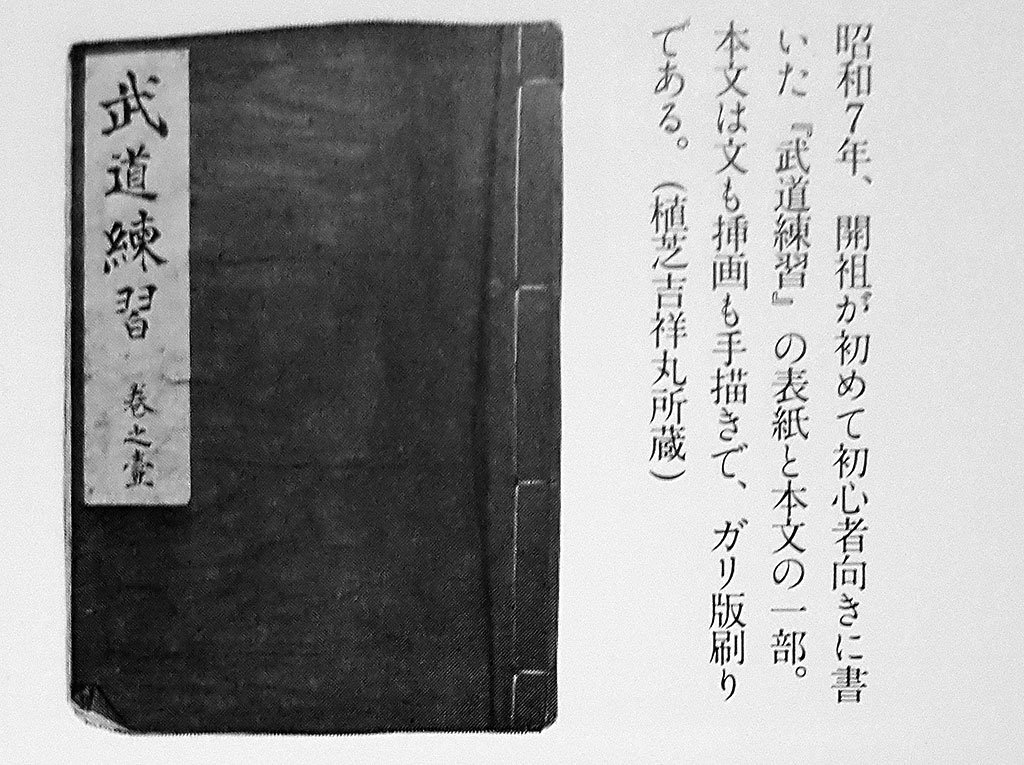 昭和7年、開祖が初めて初心者向きに書
いた『武道練習』の表紙と本文の一部。
本文は文も挿画も手描きで、ガリ版刷り
である。(植芝吉祥丸所蔵)
武道練習 巻之壹